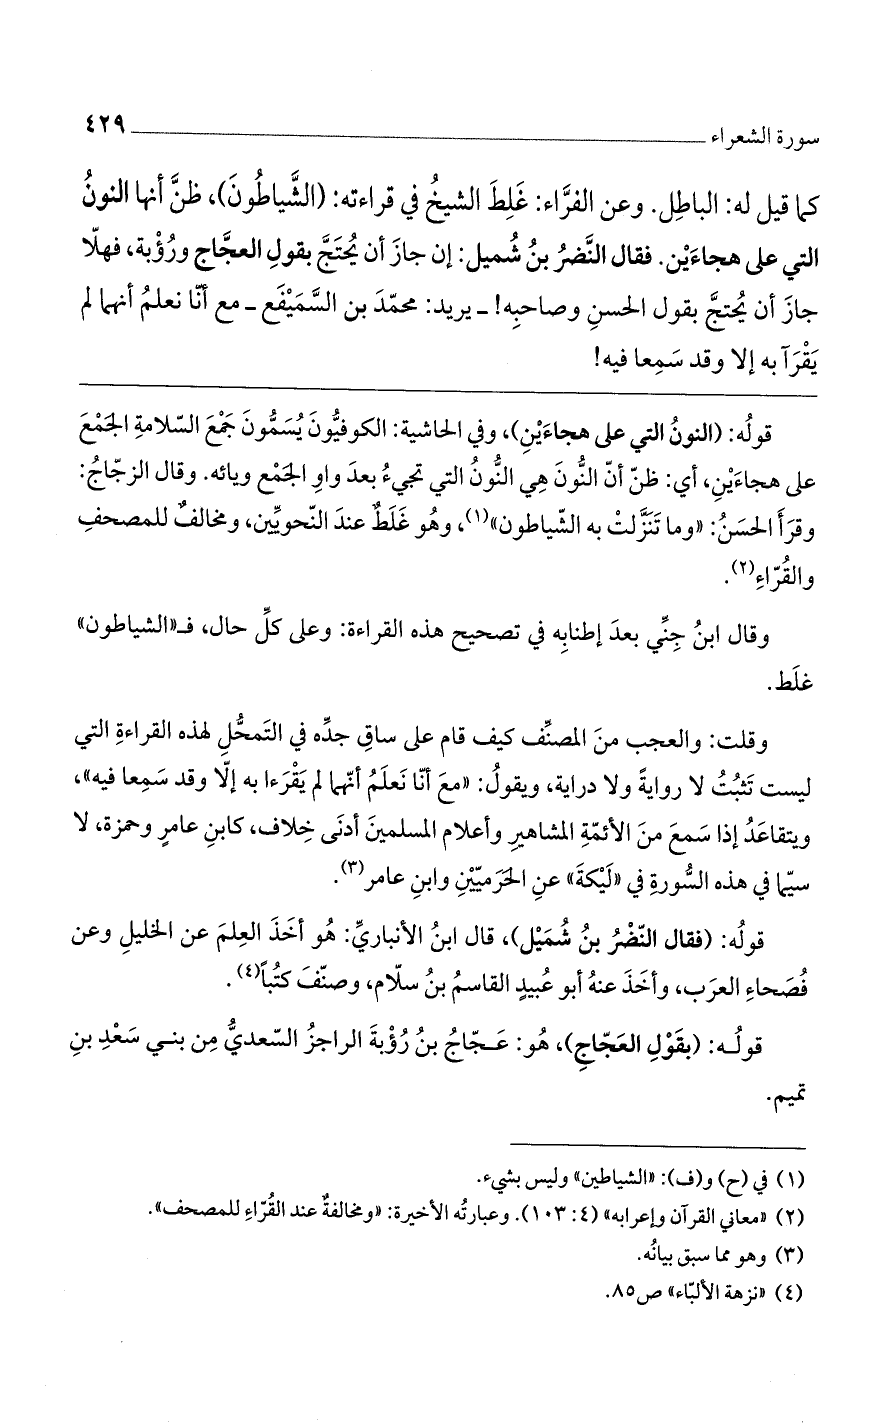 سورة الشعراء ٤٢٩
كما قيل له: الباطِل. وعن الفرَّاء: غَلِطَ الشيخُ في قراءته: (الشَّياطُونَ)، ظنَّ أنها النونُ
التي على هجاءَيْن. فقال النَّضرُ بنُ شُميل: إن جازَ أن يُحتَجَّ بقولِ العجَّاج ورُؤْبة، فهلّا
جازَ أن يُحتجَّ بقول الحسنِ وصاحبِه! ـ يريد: محمّدَ بن السَّمَيْفَع ـ مع أنّا نعلمُ أنهما لم
يَقْرَآ به إلا وقد سَمِعا فيه!
قولُه: (النونُ التي على هجاءَيْنِ)، وفي الحاشية: الكوفيُّونَ يُسَمُّونَ جَمْعَ السّلامةِ الجَمْعَ
على هجاءَيْنِ، أي: ظنّ أنّ النُّونَ هِي النُّونُ التي تجيءُ بعدَ واوِ الجَمْع ويائه. وقال الزجّاجُ:
وقرَأَ الحسَنُ: «وما تَنَزَّلتْ به الشّياطون»(١)، وهُو غَلَطٌ عندَ النّحويِّين، ومخالفٌ للمصحفِ
والقُرّاءِ(٢).
وقال ابنُ جِنِّي بعدَ إطنابِه في تصحيح هذه القراءة: وعلى كلِّ حال، فـ«الشياطون»
غلَط.
وقلت: والعجب منَ المصنِّف كيف قام على ساقِ جدِّه في التَمحُّلِ لهذه القراءةِ التي
ليست تَثبُتُ لا روايةً ولا دراية، ويقولُ: «معَ أنّا نَعلَمُ أنّهما لم يَقْرَءا به إلّا وقد سَمِعا فيه»،
ويتقاعَدُ إذا سَمعَ منَ الأئمّةِ المشاهيرِ وأعلام المسلمينَ أدنَى خِلاف، كابنِ عامرٍ وحمزة، لا
سيّما في هذه السُّورةِ في «لَيْكةَ» عنِ الحَرَميّيْنِ وابنِ عامر(٣).
قولُه: (فقال النّضْرُ بنُ شُمَيْل)، قال ابنُ الأنباريِّ: هُو أخَذَ العِلمَ عن الخليلِ وعن
فُصَحاءِ العرَب، وأخَذَ عنهُ أبو عُبيدٍ القاسمُ بنُ سلّام، وصنّفَ كتُباً(٤).
قولُـه: (بقَوْلِ العَجّاجِ)، هُو: عَـجّاجُ بنُ رُؤْبةَ الراجزُ السّعديُّ مِن بنـي سَعْدِ بنِ
تميم.
(١) في (ح) و(ف): «الشياطين» وليس بشيء.
(٢) «معاني القرآن وإعرابه» (٤: ١٠٣). وعبارتُه الأخيرة: «ومخالفةٌ عند القُرّاءِ للمصحف».
(٣) وهو مما سبق بيانُه.
(٤) «نزهة الألبّاء» ص٨٥.